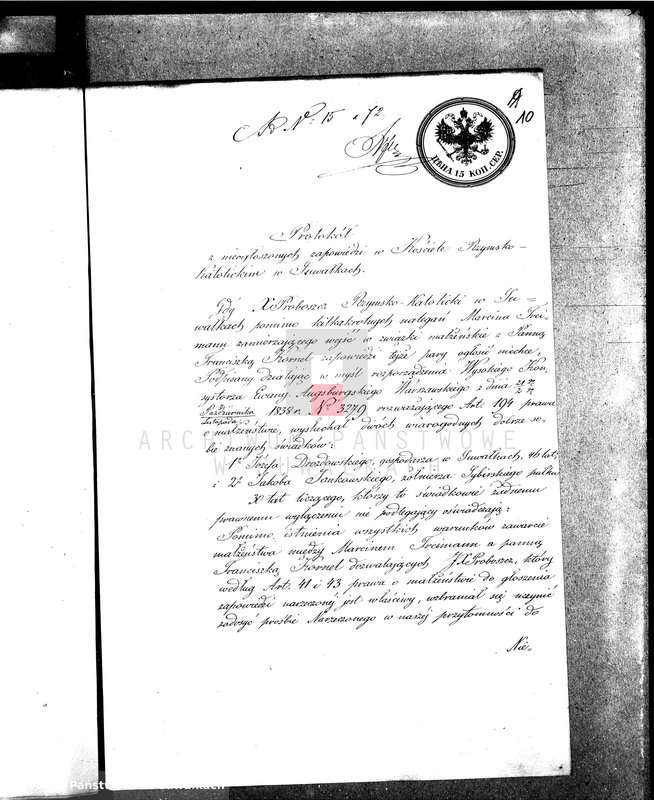 10
№ 15 72
ЦѢНА 15 КОП. СЕР.
Protokół
z nieogłoszonych zapowiedzi w Kościele Rzymsko-
Katolickim w Suwałkach.
Gdy X Proboszcz Rzymsko-Katolicki w Su-
wałkach pomimo kilkakrotnych nalegań Marcina Trei-
mann zamierzającego wejść w związki małżeńskie z Panną
Franciszką Kornel zapowiedzi tejże pary ogłosić niechce,
Podpisany działając w myśl rozporządzenia Wysokiego Kon-
systorza Ewang. Augsburgskiego Warszawskiego z dnia
Października
Listopada 1838 r. № 3279 rozważającego Art. 194 prawa
o małżeństwie, wysłuchał dwóch wiarogodnych dobrze so-
bie znanych świadków:
1° Józefa Drozdowskiego, gospodarza w Suwałkach, 46 lat,
i 2° Jakóba Jankowskiego, żołnierza Sybirskiego pułku
lat liczącego, którzy to świadkowie żadnemu
prawnemu wyłączeniu nie podlegający oświadczają:
Pomimo istnienia wszystkich warunków zawarcie
małżeństwa między Marcinem Treimann a panną
Franciszką Kornel dozwalających J X Proboszcz, który
według Art. 41 i 43 prawa o małżeństwie do głoszenia
zapowiedzi narzeczonej jest właściwy, wzbraniał się uczynić
zadosyć prośbie Narzeczonego w naszej przytomności do
Nie-
ARCHIWUM PAŃSTWOWE
W SUWAŁKACH